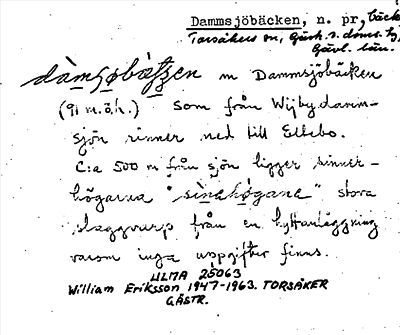 Dammsjöbäcken, n. pr., bäck
Torsåkers sn, Gästr. s. doms. hg
Gävl. län.
dàmsøbækːen m Dammsjöbäcken
(91 m.ö.h.) som från Wijbydamm-
sjön rinner ned till Ellebo.
C:a 500 m från sjön ligger sinner-
högarna "sinehøgane" stora
slaggvarp från en hyttanläggning
varom inga uppgifter finns.
ULMA 25063
William Eriksson 1947-1963. TORSÅKER
GÄSTR.